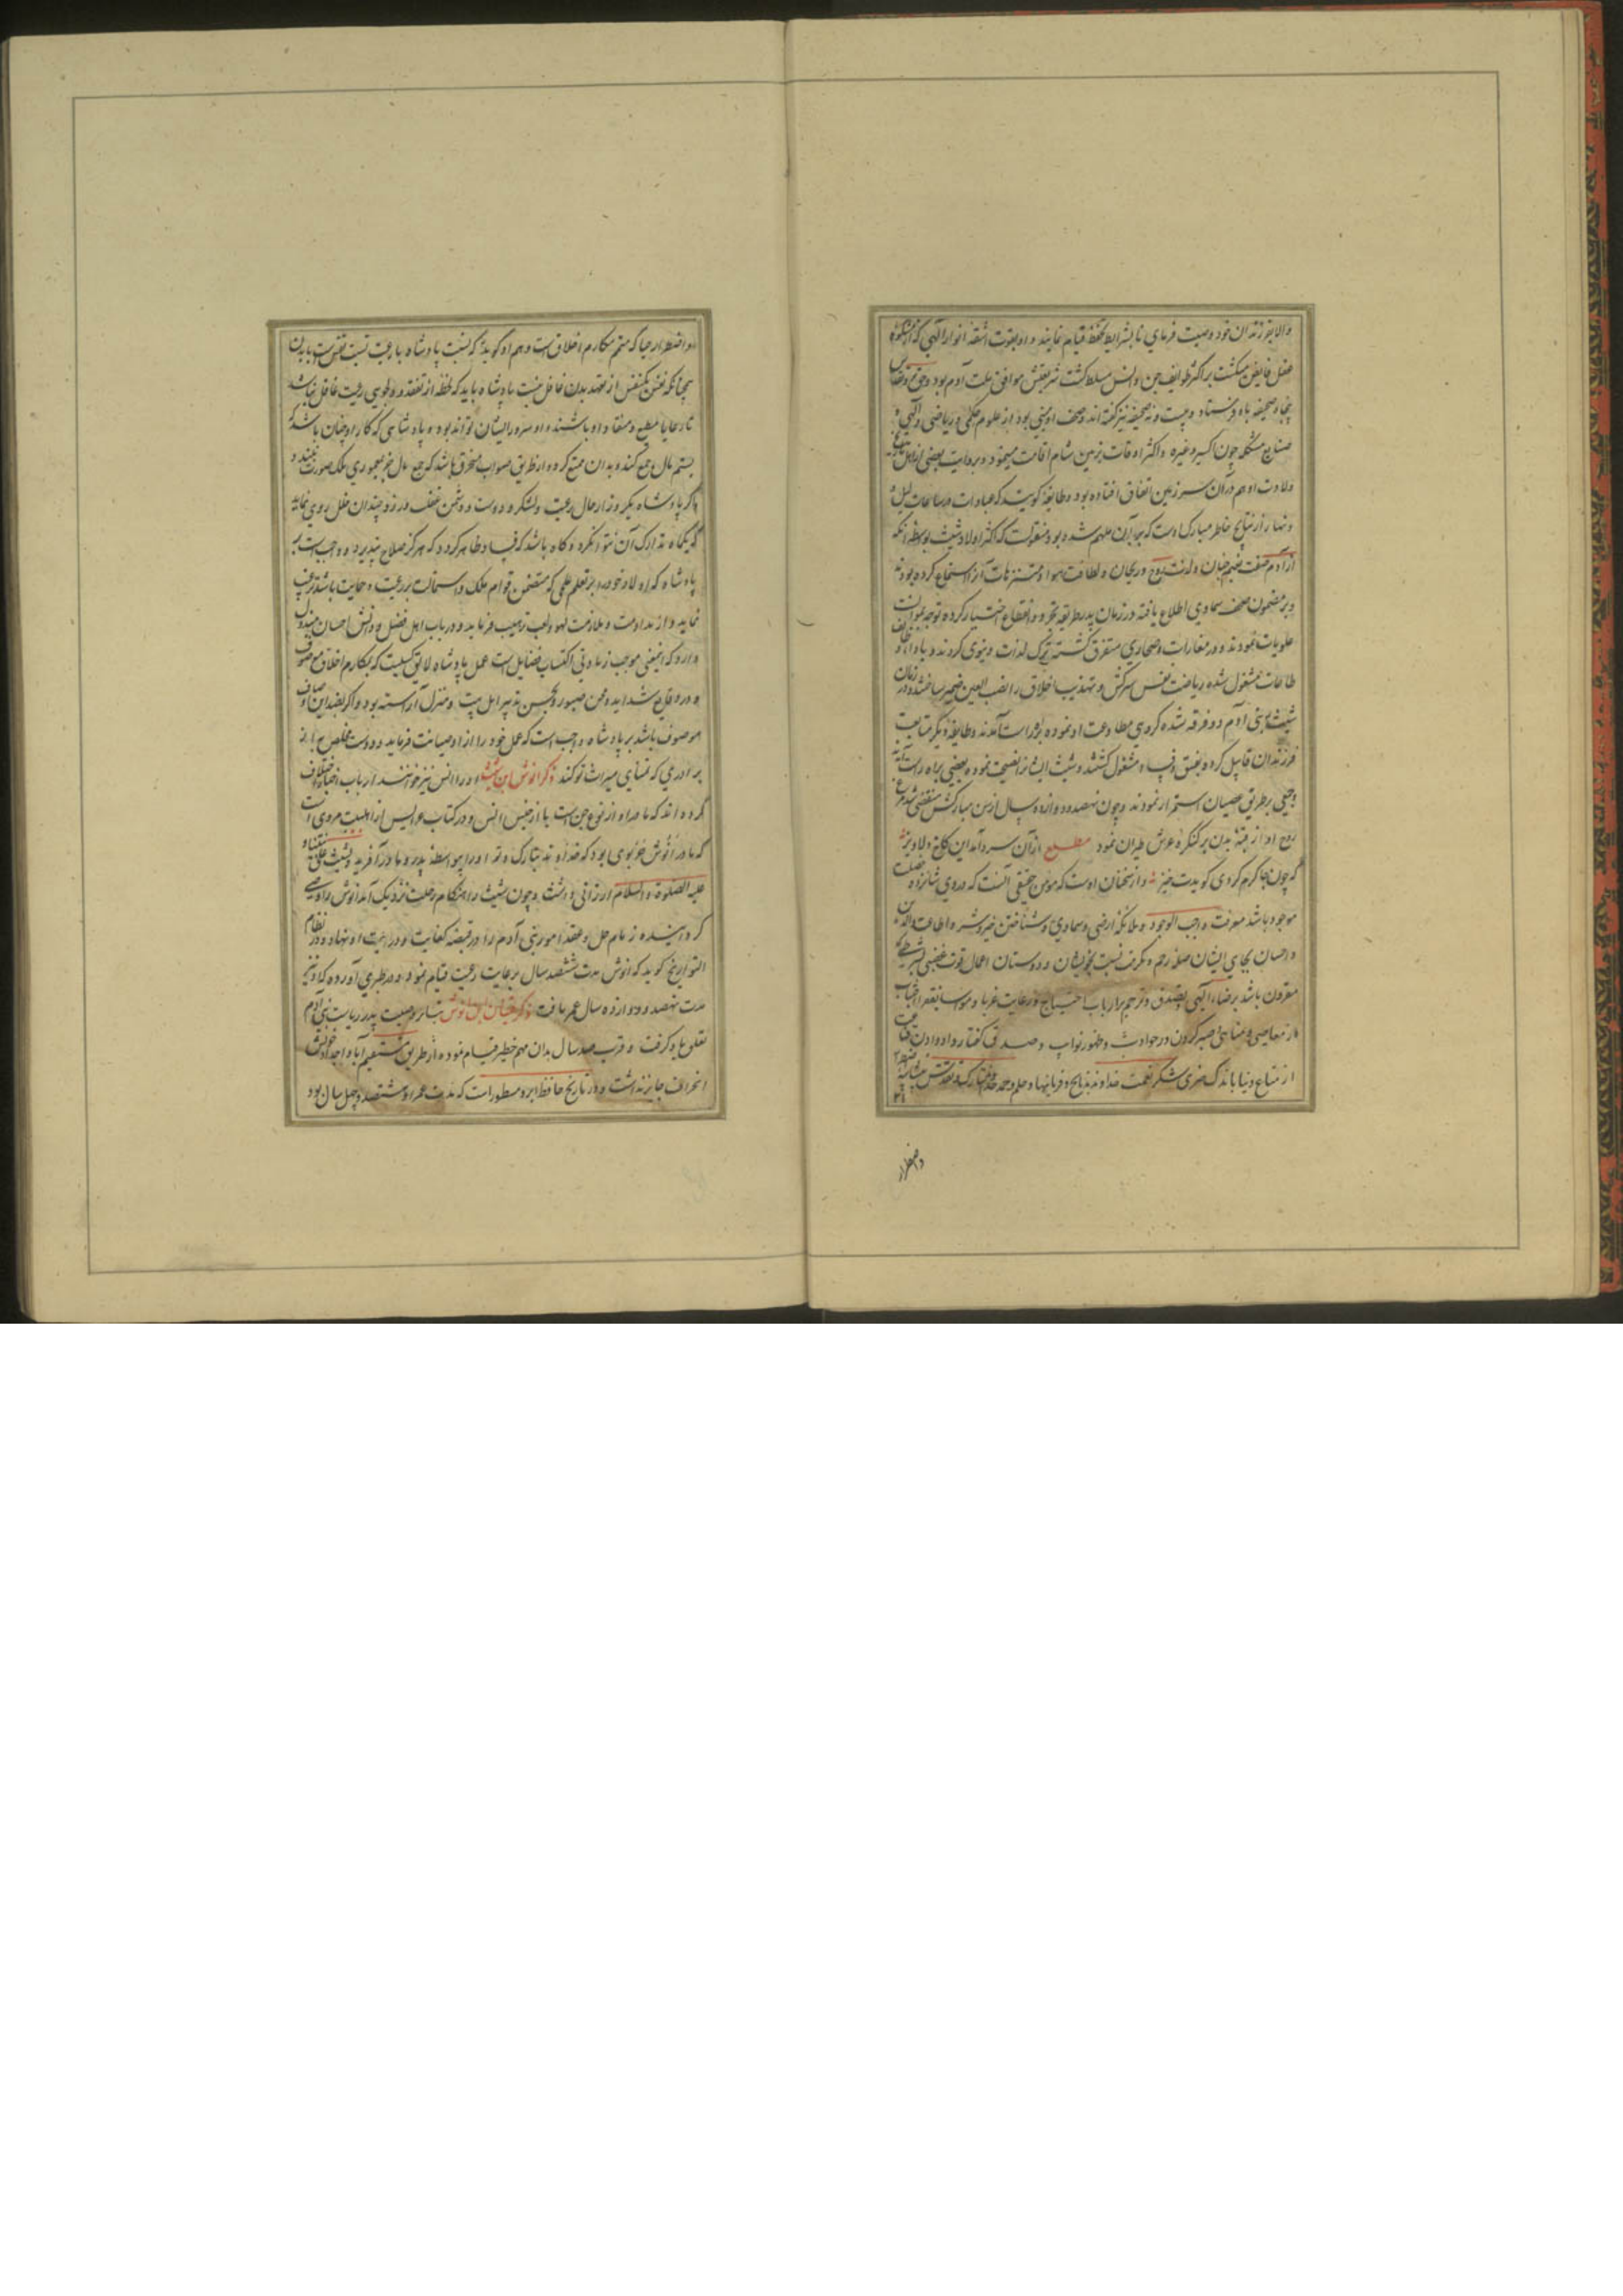 والا بفرزندان خود وصیت فرمای تا بشرایط تحفظ قیام نمایند و او بقوت اشعه انوار الهی که از مشکوة
عقل فایض میکشت بر اکثر طوایف جن و انس مسلط کشت شریعتش موافق ملت آدم بود و حق
پنجاه صحیفه باو فرستاد و بیست و نه صحیفه نیز کفته اند و صحف او مبنی بود از علوم حکمی و ریاضی و الهی و
صنایع مشکله چون اکسیر و غیره و اکثر اوقات بزمین شام اقامت مینمود و بروایت بعضی از اهل
ولادت او هم در آن سرزمین اتفاق افتاده بود و طایفه کویند که عبادات در ساعات لیل و
و نهار از نتایج خاطر مبارک اوست که بدان ملهم شده بود منقولست که اکثر اولاد شیث بواسطه آنکه
از آدم صفت نعیم جنان و لذت روح و ریحان و لطافت هوا و مستنزهات آنرا استماع کرده بودند
و بر مضمون صحف سماوی اطلاع یافته در زمان پدر طریقه تجرد و انقطاع اختیار کرده توجه
علویات نمودند و در مغارات و صحاری متفرق کشته ترک لذات دنیوی کردند و باداء وظایف
طاعات مشغول شده ریاضت نفس سرکش و تهذیب اخلاق را نصب العین ضمیر ساختند و در زمان
شیث بنی آدم دو فرقه شده کروهی مطاوعت او نموده براه راست آمدند و طایفه دیکر متابعت
فرزندان قابیل کرده بفسق و فساد مشغول کشتند و شیث ایشانرا نصیحت نموده بعضی براه راست آمده
و جمعی بر طریق عصیان استمرار نمودند و چون نهصد و دوازده سال از سن مبارکش منقضی شد مرغ
روح او از جثه بدن بر کنکره عرش طیران نمود مطلع از آن سرد آمد این کاخ دلاویز
که چون جا کرم کردی کویدت خیز و از سخنان اوست که مؤمن حقیقی آنست که در وی شانزده خصلت
موجود باشد معرفت واجب الوجود و ملائکه ارضی و سماوی و شناختن خیر و شر و اطاعت والدین
و احسان بجای ایشان صله رحم و مکرمت نسبت بخویشان و دوستان اعمال قوت غضبی بشرطی که
مقرون باشد برضاء الهی و تصدق و ترحم بر ارباب احتیاج و رعایت غربا و مواسا بفقرا اجتناب
از معاصی و مناهی صبر کردن در حوادث و ظهور نوایب و صدق کفتار و داد دادن قناعت
از متاع دنیا باندک چیزی شکر نعمت خداوند بذبایح و قربانیها و حلم و حمد خدای تبارک و تعالی
واضطرار
واضطرار حیا که متمم مکارم اخلاق است و هم او کوید که نسبت پادشاه با رعیت نسبت نفس است با بدن
همچنانکه نفس یکنفس از تعهد بدن غافل نیست پادشاه باید که لحظه از تفقد و دلجویی رعیت غافل نباشد
تا رعایا مطیع و منقاد او باشند و او سرور ایشان تواند بود و پادشاهی که کار او چنان باشد که
بستم مال جمع کند و بدان تمتع کرده از طریق صواب منحرف باشد که جمع مال جز بمعموری ملک صورت نبندد و
اکر پادشاه یکروز از حال رعیت و لشکر و دوست و دشمن غفلت ورزد چندان خلل روی نماید
که یکماه تدارک آن نتواند کرد و کاه باشد که فساد ظاهر کردد که هرکز صلاح نپذیرد و واجب است بر
پادشاه که اولاد خود را بر تعلم علمی که متضمن قوام ملک و استمالت بر رعیت و حمایت باشد ترغیب
نماید و از مداومت و ملازمت لهو و لعب ترهیب فرماید و در باب اهل فضل و دانش احسان مبذول
دارد که اینمعنی موجب زیادتی اکتساب فضایل است عمل پادشاه لایق کسیست که بمکارم اخلاق موصوف
و در وقایع شداید و محن صبور و بحسن تدبیر اهل بیت و منزل آراسته بود و اکر بضد این اوصاف
موصوف باشد بر پادشاه واجب است که عمل خود را از او صیانت فرماید و دوست مخلص به از
برادری که تمنای میراث تو کند ذکر انوش ابن شیث او را انس نیز خوانند ارباب اخبار اختلاف
کرده اند که مادر او از نوع جن است یا از جنس انس و در کتاب عرایس از اهل بیت مروی است
که مادر انوش حوری بود که خداوند تبارک و تعالی او را بیواسطه پدر و مادر آفرید و بشیث علی نبینا و
علیه الصلوة والسلام ارزانی داشت و چون شیث را هنکام رحلت نزدیک آمد انوش را وصی
کردانیده زمام حل و عقد امور بنی آدم را در قبضه کفایت و درایت او نهاد و در نظام
التواریخ کوید که انوش مدت ششصد سال برعایت رعیت قیام نمود و در طبری آورده که او
مدت نهصد و دوازده سال عمر یافت ذکر قینان ابن انوش بنابر وصیت پدر ریاست بنی آدم
تعلق باو کرفت و قرب صد سال بدان مهم خطیر قیام نموده از طریق مستقیم آبا و اجداد خویش
انحراف جایز نداشت و در تاریخ حافظ ابرو مسطور است که مدت عمر او ششصد و چهل سال بود